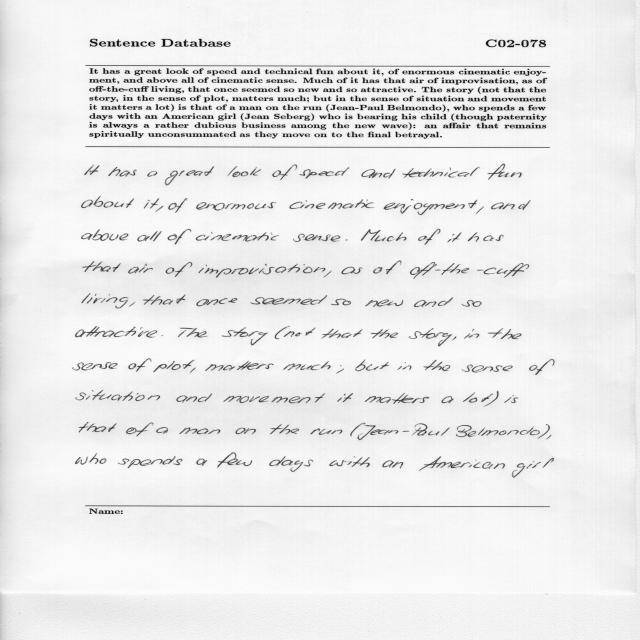 Sentence Database C02-078
It has a great look of speed and technical fun about it, of enormous cinematic enjoy-
ment, and above all of cinematic sense. Much of it has that air of improvisation, as of
off-the-cuff living, that once seemed so new and so attractive. The story (not that the
story, in the sense of plot, matters much; but in the sense of situation and movement
it matters a lot) is that of a man on the run (Jean-Paul Belmondo), who spends a few
days with an American girl (Jean Seberg) who is bearing his child (though paternity
is always a rather dubious business among the new wave): an affair that remains
spiritually unconsummated as they move on to the final betrayal.
It has a great look of speed and technical fun
about it, of enormous cinematic enjoyment, and
above all of cinematic sense. Much of it has
that air of improvisation, as of off-the-cuff
living, that once seemed so new and so
attractive. The story (not that the story, in the
sense of plot, matters much; but in the sense of
situation and movement it matters a lot) is
that of a man on the run (Jean-Paul Belmondo),
who spends a few days with an American girl
Name: